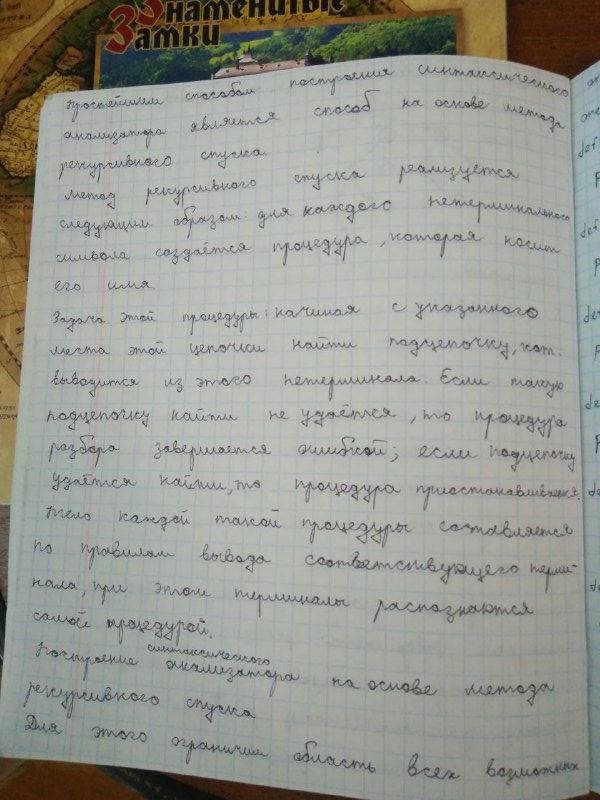 Знаменитые
Замки
Простейшим способом построения синтаксического
анализатора является способ на основе метода
рекурсивного спуска.
Метод рекурсивного спуска реализуется
следующим образом: для каждого нетерминального
символа создаётся процедура, которая носит
его имя
Задача этой процедуры: начиная с указанного
места этой цепочки найти подцепочку, кот.
выводится из этого нетерминала. Если такую
подцепочку найти не удаётся, то процедура
разбора завершается ошибкой; если подцепочку
удаётся найти, то процедура приостанавливается.
Тело каждой такой процедуры составляется
по правилам вывода соответствующего терми-
нала, при этом терминалы распознаются
самой процедурой.
Построение синтаксического анализатора на основе метода
рекурсивного спуска
Для этого ограничим область всех возможных
def
def
def
def